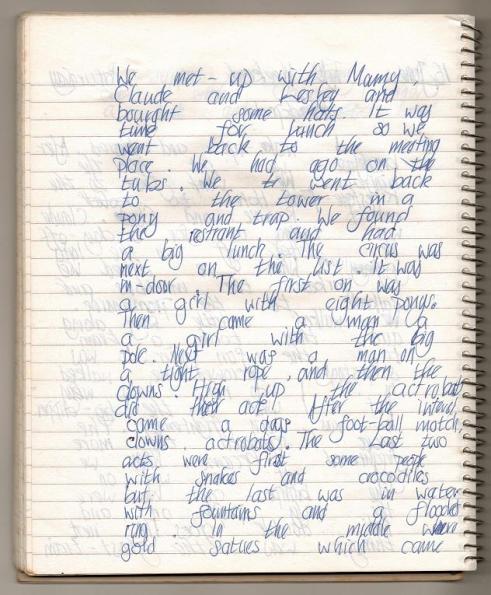 We met-up with Mamy
Claude and Lesley and
bought some hats. It was
time for lunch so we
went back to the meeting
place. We had ago on the
tubs. We tr went back
to the tower in a
pony and trap. We found
the restrant and had
a big lunch. The circus was
next on the list. It was
in-door. The first on was
a girl with eight ponys.
Then came a man a
a girl with the big
pole. Next was a man on
a tight rope and then the
clowns. High up the actrobats
did their act. After the interval,
came a dogs foot-ball match,
clowns, actrobats. The last two
acts were first some people
with snakes and crocodiles
but the last was in water
with fountains and a flooded
ring. In the middle were
gold satues which came